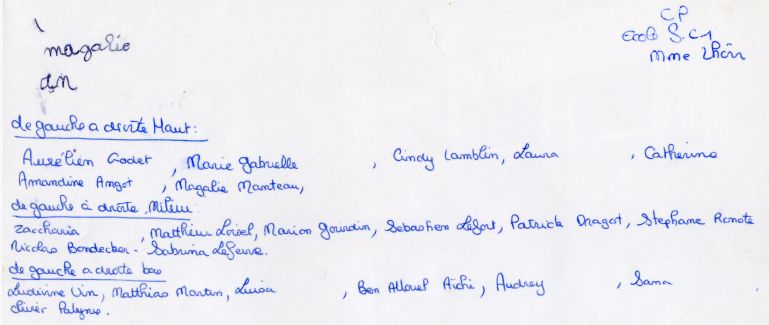 magalie
CP
Ecole S.C1
Mme
de gauche a droite Haut:
Aurélien Godet, Marie Gabrielle, Cindy Lamblin, Laura, Catherine
Amandine Angot, Magalie Manteau,
de gauche à droite Milieu
Zaccharia, Matthieu Loisel, Marion Gourdin, Sebastien Lefort, Patrick Dragot, Stephane Remote
Nicolas Bondecker - Sabrina Lefeuve.
de gauche a droite bas
Ludivine Vin, Matthias Martin, Luisa, Ben Allouel Aïchi, Audrey, Sana
Olivier